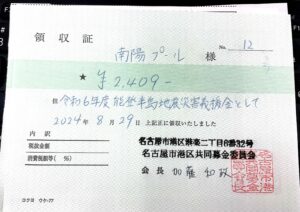 領収証
No. 12
南陽プール 様
★ ¥2,409-
但 令和6年度 能登半島地震災害義援金として
2024年 8月 29日 上記正に領収いたしました
内訳
税抜金額
消費税額等( %)
名古屋市港区港楽二丁目6番32号
名古屋市港区共同募金委員会
会長 加藤 和政
コクヨ ウケ-77